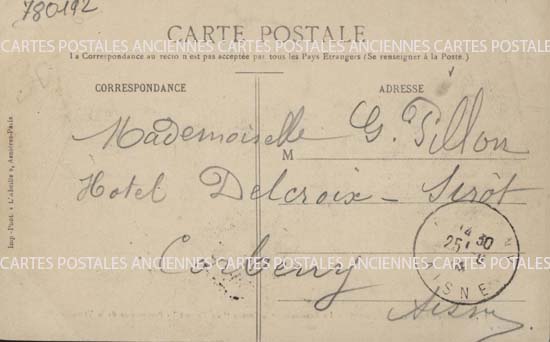 780192
CARTE POSTALE
CARTES POSTALES ANCIENNES CARTES POSTALES ANCIENNES CARTES POSTALES
La Correspondance au recto n'est pas acceptée par tous les Pays Etrangers (Se renseigner à la Poste.)
CORRESPONDANCE
ADRESSE
Mademoiselle G. Pillon
M
Hotel Delcroix - Sirôt
Corbeny
Aisne
14 30
25
AISNE
CARTES POSTALES ANCIENNES CARTES POSTALES ANCIENNES CARTES POSTALES
Imp-Phot « L'Abeille », Asnières-Paris